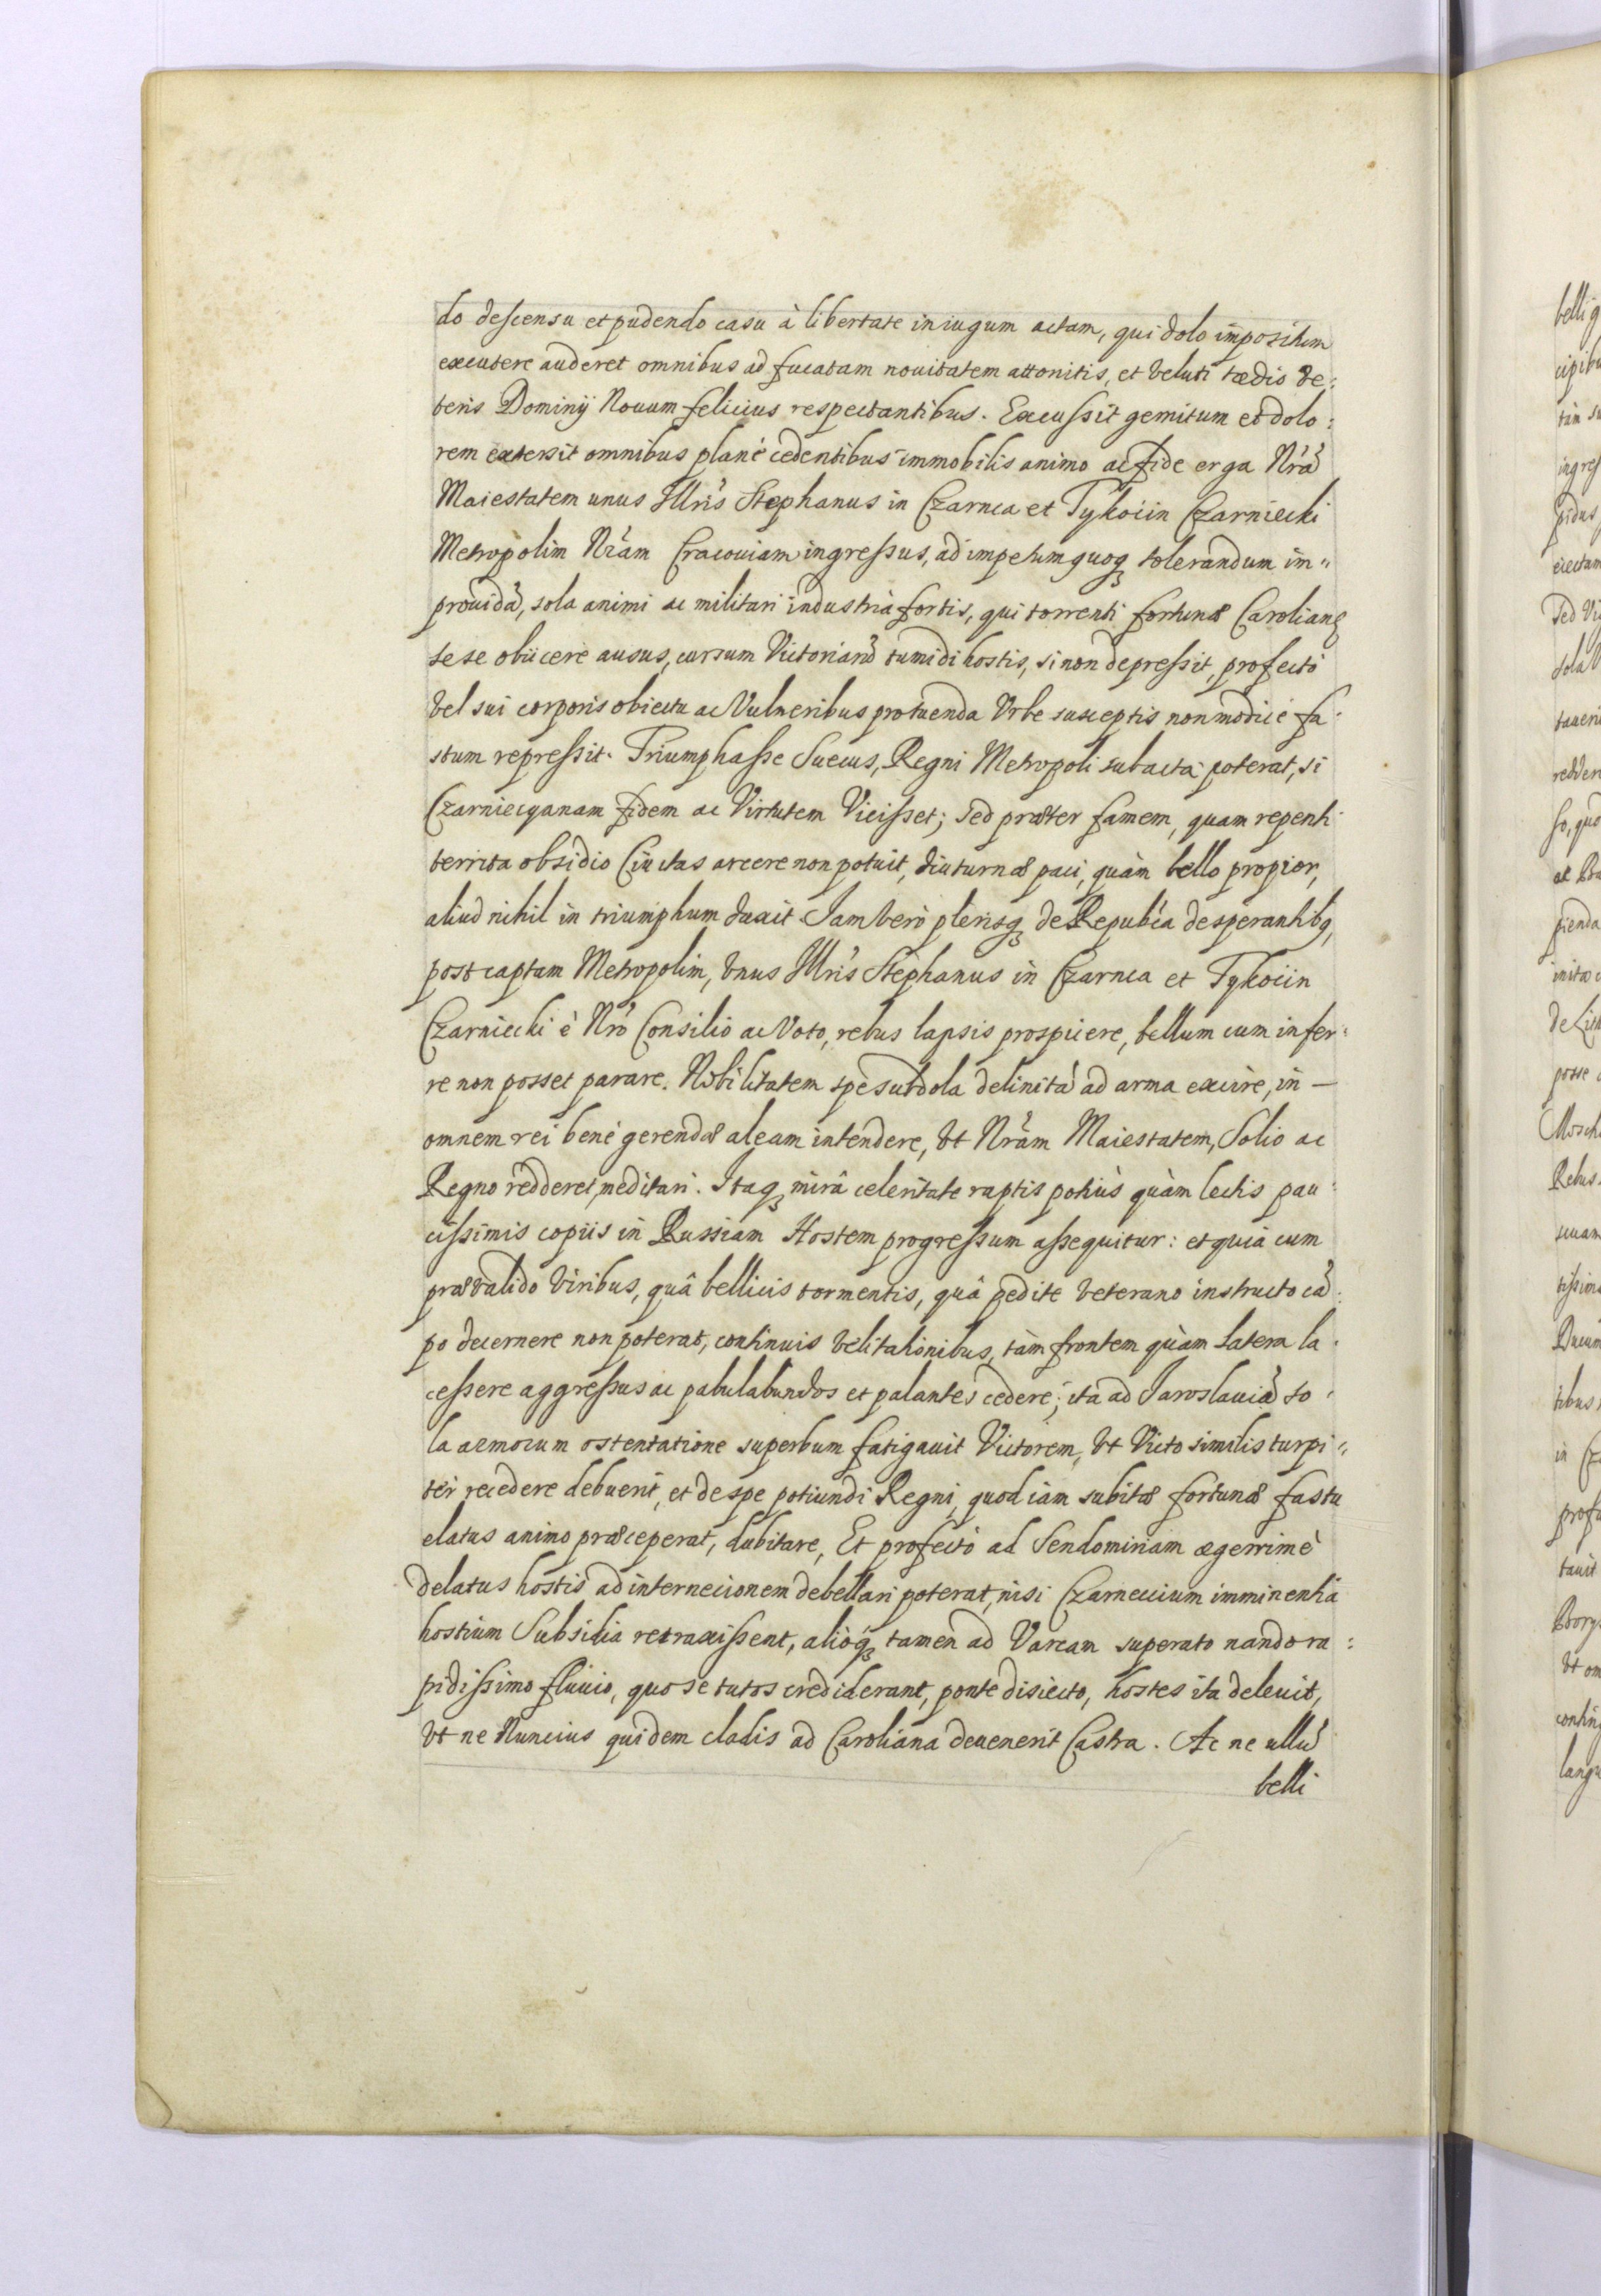 do descensu et pudendo casu à libertate in iugum actam, qui dolo impositum
excutere auderet omnibus ad fucatam nouitatem attonitis, et veluti tædio ve:
teris Dominij Nouum felicius respectantibus. Excussit gemitum et dolo:
rem extersit omnibus planè cedentibus immobilis animo ac fide erga Nrã
Maiestatem unus Illris Stephanus in Czarnca et Tykocin Czarniecki
Metropolim Nram Cracouiam ingressus, ad impetum quoq tolerandum im„
prouidã, sola animi ac militari industria fortis, qui torrenti fortunæ Carolianę
sese obiicere ausus, cursum Victoriarũ tumidi hostis, si non depressit, profectò
vel sui corporis obiectu ac Vulneribus pro tuenda Vrbe susceptis non modicè fa:
stum repressit. Triumphasse Suecus, Regni Metropoli subacta poterat, si
Czarniecyanam fidem ac Virtutem Vicisset; sed præter famem, quam repenti:
territa obsidio Ciuitas arcere non potuit, diuturnæ paci, quàm bello propior,
aliud nihil in triumphum duxit. Jam verò plerisq de Republca desperantibq,
post captam Metropolim, vnus Illris Stephanus in Czarnca et Tykocin
Czarniecki è Nro Consilio ac Voto, rebus lapsis prospicere, bellum cum infer:
re non posset parare. Nobilitatem spè subdola delinitã ad arma excire, in —
omnem rei benè gerendæ aleam intendere, vt Nram Maiestatem, Solio ac
Regno redderet, meditari. Itaq mirâ celeritate raptis potiùs quàm lectis pau:
cissimis copiis in Russiam Hostem progressum assequitur: et quia cum
prævalido viribus, quâ bellicis tormentis, quâ pedite veterano instructo cã:
po decernere non poterat, continuis velitationibus, tàm frontem quàm latera la:
cessere aggressus ac pabulabundos et palantes cedere; ita ad Jaroslauiã so:
la armorum ostentatione superbum fatigauit Victorem, vt Victo similis turpi„
ter recedere debuerit, et de spe potiundi Regni, quod iam subitæ fortunæ fastu
elatus animo præceperat, dubitare, Et profectò ad Sendomiriam ægerrimè
delatus hostis ad internecionem debellari poterat, nisi Czarneccium imminentia
hostium Subsidia retraxissent, alioq tamen ad Varcam superato nando ra:
pidissimo fluuio, quo se tutos crediderant, ponte disiecto, hostes ita deleuit,
vt ne Nuncius quidem cladis ad Caroliana deuenerit Castra. Ac ne ullũ
belli